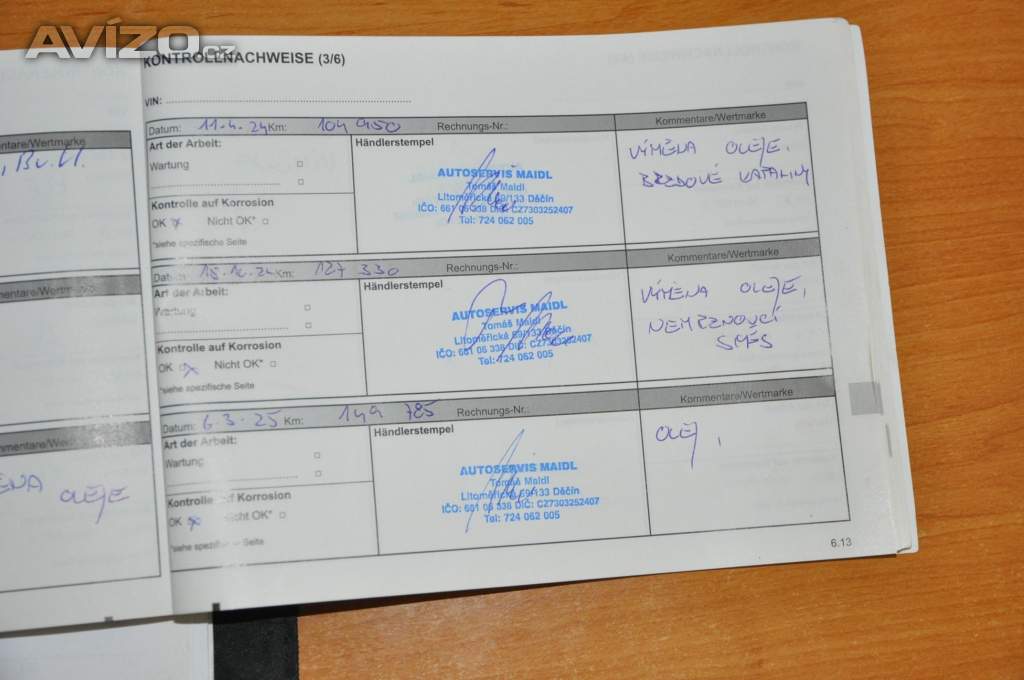 AVÍZO.cz
KONTROLLNACHWEISE (3/6)
VIN:
Datum: 11.4.24 Km: 104 950 Rechnungs-Nr.:
Kommentare/Wertmarke
Art der Arbeit:
Wartung
Kontrolle auf Korrosion
OK Nicht OK*
*siehe spezifische Seite
Händlerstempel
AUTOSERVIS MAIDL
Tomáš Maidl
Litoměřická 69/133 Děčín
IČO: 661 06 338 DIČ: CZ7303252407
Tel: 724 062 005
VÝMĚNA OLEJE,
BRZDOVÉ KAPALINY
Datum: 15.10.24 Km: 127 330 Rechnungs-Nr.:
Kommentare/Wertmarke
Art der Arbeit:
Wartung
Kontrolle auf Korrosion
OK Nicht OK*
*siehe spezifische Seite
Händlerstempel
AUTOSERVIS MAIDL
Tomáš Maidl
Litoměřická 69/133 Děčín
IČO: 661 06 338 DIČ: CZ7303252407
Tel: 724 062 005
VÝMĚNA OLEJE,
NEMRZNOUCÍ
SMĚS
Datum: 6.3.25 Km: 149 785 Rechnungs-Nr.:
Kommentare/Wertmarke
Art der Arbeit:
Wartung
Kontrolle auf Korrosion
OK Nicht OK*
*siehe spezifische Seite
Händlerstempel
AUTOSERVIS MAIDL
Tomáš Maidl
Litoměřická 69/133 Děčín
IČO: 661 06 338 DIČ: CZ7303252407
Tel: 724 062 005
OLEJ,
6.13
mentare/Wertmarke
, Br.kl.
mentare/Wertm
mmentare/We
ĚNA OLEJE